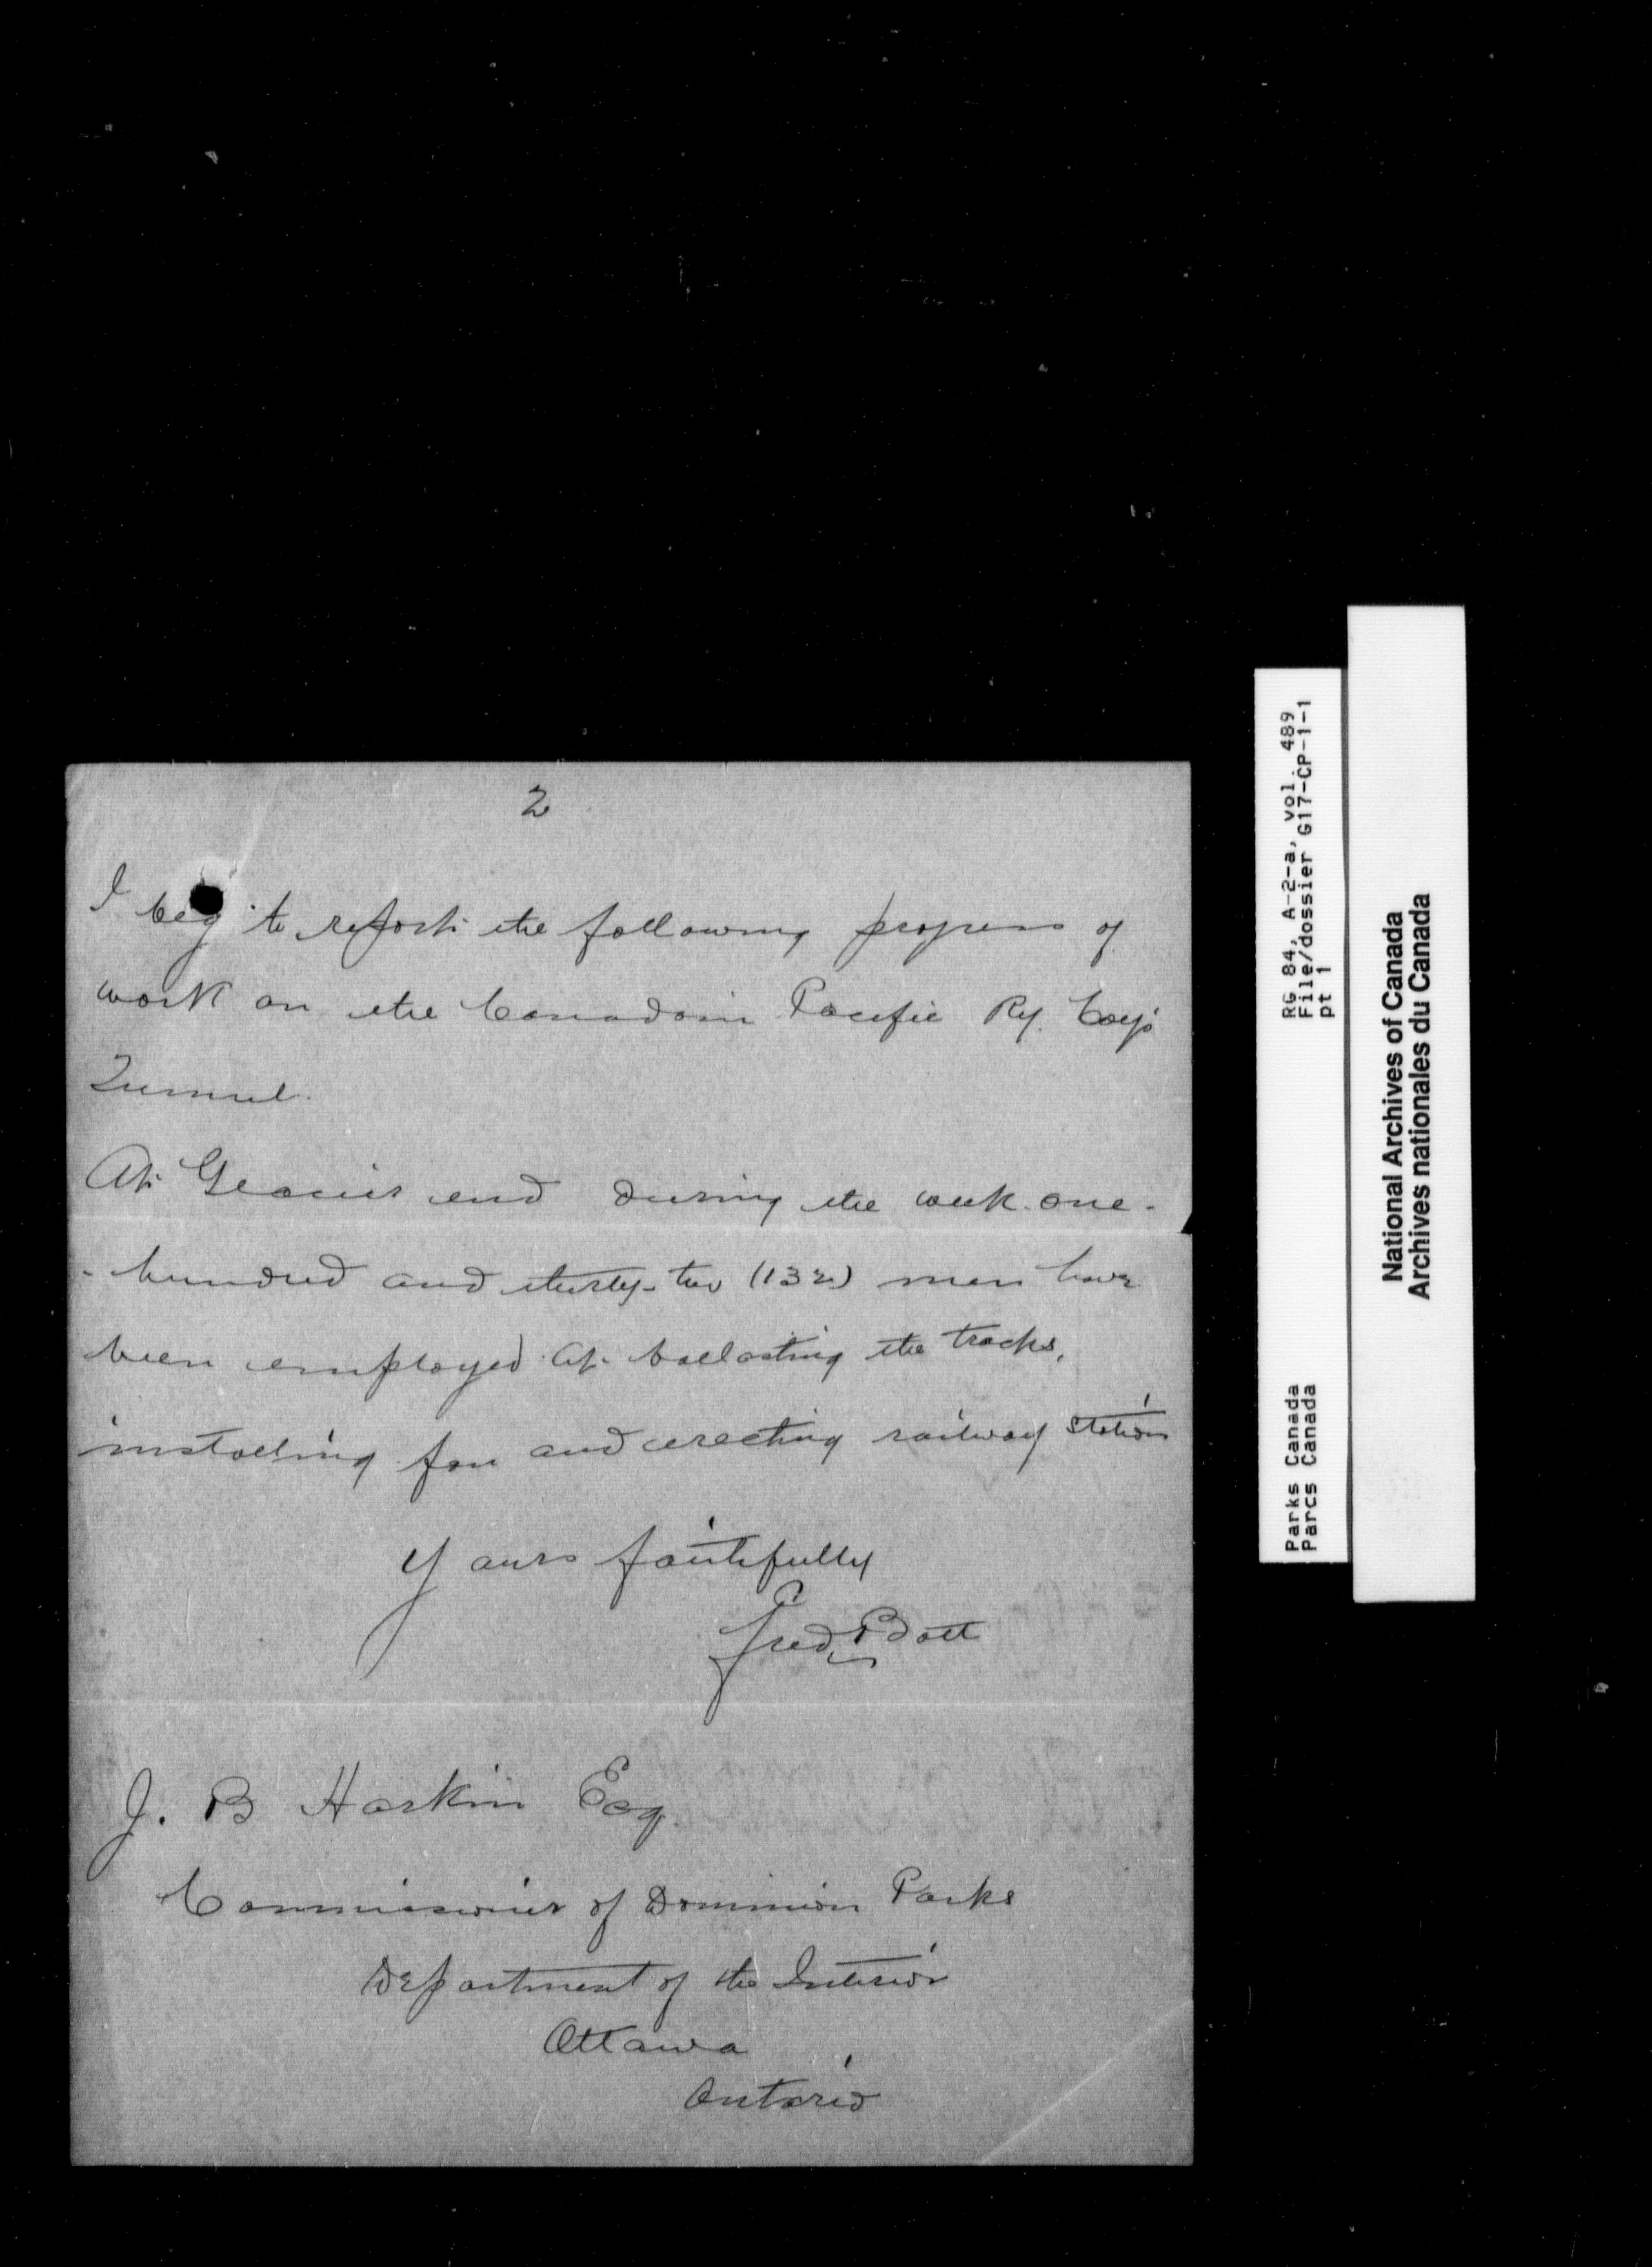 2
I beg to report the following progress of
work on the Canadain Pacific Ry. Coy's
Tunnel.
At Glacier end during the week one-
-hundred and thirty-two (132) men have
been employed at ballasting the tracks,
installing fan and erecting railway station
Yours faithfully
Fred Bott
J. B Harkin Esq.
Commissioner of Dominion Parks
Department of the Interior
Ottawa
Ontario
RG 84, A-2-a, vol. 489
File/dossier G17-CP-1-1
pt 1
Parks Canada
Parcs Canada
National Archives of Canada
Archives nationales du Canada